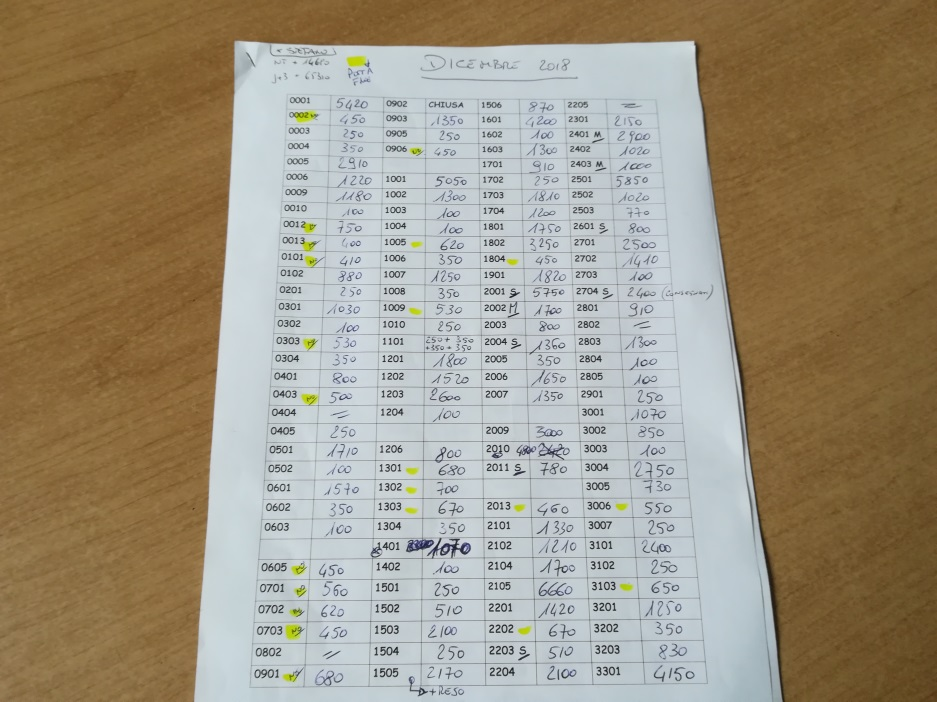 + SZTAKU
NT + 14610
J+3 + 65310
POSTA
FINE
DICEMBRE 2018
0001 5420 0902 CHIUSA 1506 870 2205 =
0002 450 0903 1350 1601 4200 2301 2150
0003 250 0905 250 1602 100 2401 M 2900
0004 350 0906 450 1603 1300 2402 1020
0005 2910 1701 910 2403 M 1000
0006 1220 1001 5050 1702 250 2501 5850
0009 1180 1002 1300 1703 1810 2502 1020
0010 100 1003 100 1704 1200 2503 770
0012 750 1004 100 1801 1750 2601 S 800
0013 400 1005 620 1802 3250 2701 2500
0101 410 1006 350 1804 450 2702 1410
0102 880 1007 1250 1901 1820 2703 100
0201 250 1008 350 2001 S 5750 2704 S 2400
0301 1030 1009 530 2002 M 1700 2801 910
0302 100 1010 250 2003 800 2802 =
0303 530 1101 250+ 350 +350+ 350 2004 S 1360 2803 1300
0304 350 1201 1800 2005 350 2804 100
0401 800 1202 1520 2006 1650 2805 100
0403 500 1203 2600 2007 1350 2901 250
0404 = 1204 100 3001 1070
0405 250 2009 3000 3002 850
0501 1710 1206 800 2010 4800 3003 100
0502 100 1301 680 2011 S 780 3004 2750
0601 1570 1302 700 3005 730
0602 350 1303 670 2013 460 3006 550
0603 100 1304 350 2101 1330 3007 250
1401 1070 2102 1210 3101 2400
0605 450 1402 100 2104 1700 3102 250
0701 560 1501 250 2105 6660 3103 650
0702 620 1502 510 2201 1420 3201 1250
0703 450 1503 2100 2202 670 3202 350
0802 = 1504 250 2203 S 510 3203 830
0901 680 1505 2170 2204 2100 3301 4150
+ RESO